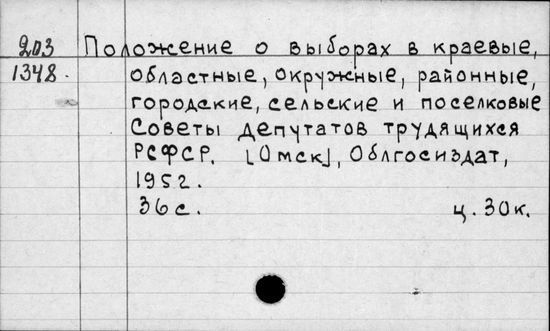 203 Положение о выборах в краевые,
1348. областные, окружные, районные,
городские, сельские и поселковые
Советы депутатов трудящихся
РСФСР. [Омск], Облгосиздат,
1952.
36с. ц. 30к.